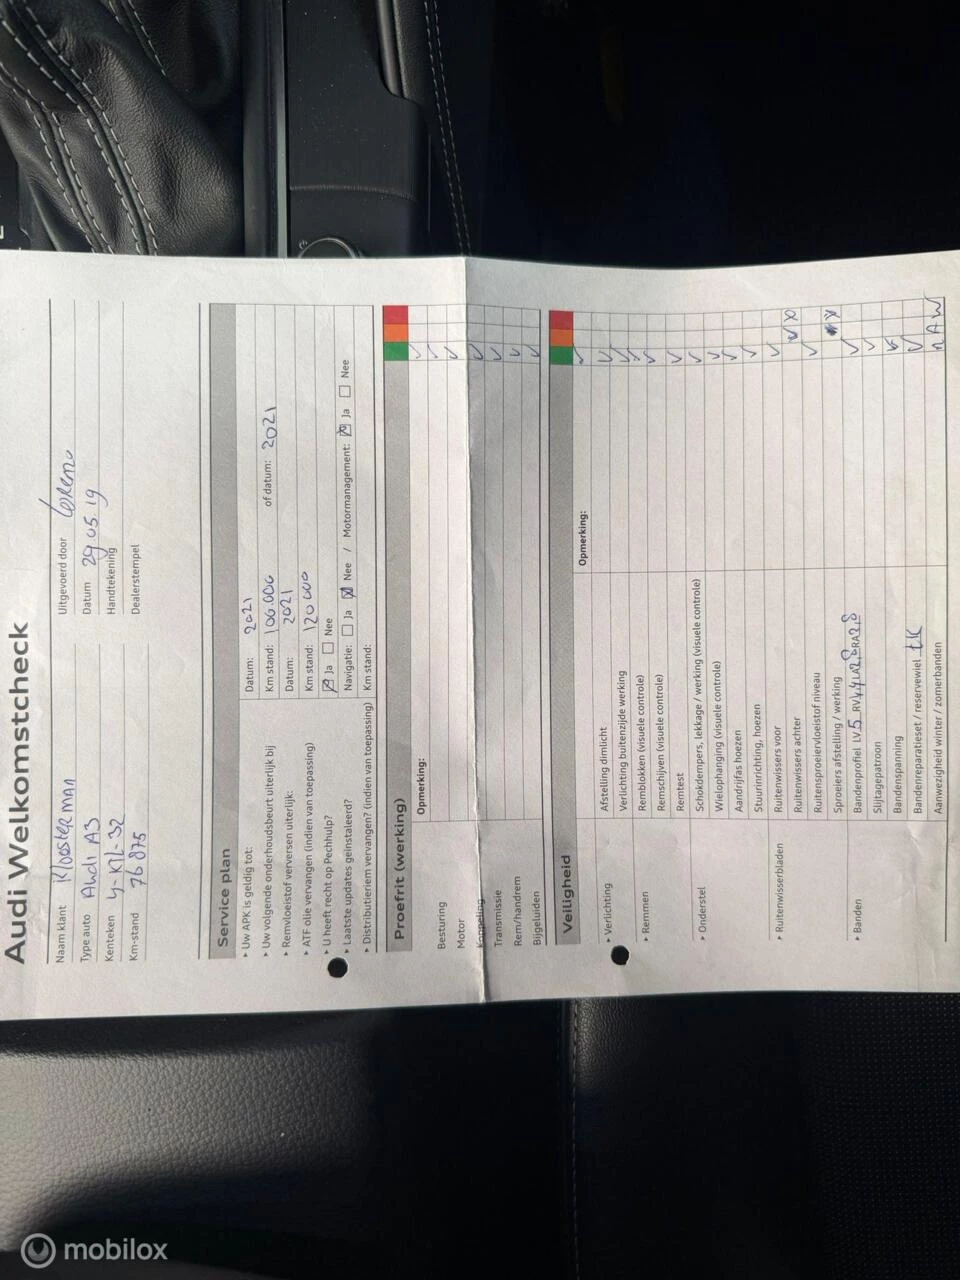 Audi Welkomstcheck
Naam klant Kloosterman Uitgevoerd door
Type auto Audi A3 Datum 29.05.19
Kenteken 4-KTL-32 Handtekening
Km-stand 76875 Dealerstempel
Service plan
▸ Uw APK is geldig tot: Datum: 2021
▸ Uw volgende onderhoudsbeurt uiterlijk bij Km stand: 100.000 of datum: 2021
▸ Remvloeistof verversen uiterlijk: Datum: 2021
▸ ATF olie vervangen (indien van toepassing) Km stand: 120 000
▸ U heeft recht op Pechhulp? Ja Nee
▸ Laatste updates geïnstaleerd? Navigatie: Ja Nee / Motormanagement: Ja Nee
▸ Distributieriem vervangen? (indien van toepassing) Km stand:
Proefrit (werking)
Opmerking:
Besturing
Motor
Koppeling
Transmissie
Rem/handrem
Bijgeluiden
Veiligheid
Opmerking:
▸ Verlichting Afstelling dimlicht
Verlichting buitenzijde werking
▸ Remmen Remblokken (visuele controle)
Remschijven (visuele controle)
Remtest
▸ Onderstel Schokdempers, lekkage / werking (visuele controle)
Wielophanging (visuele controle)
Aandrijfas hoezen
Stuurinrichting, hoezen
▸ Ruitenwisserbladen Ruitenwissers voor
Ruitenwissers achter
Ruitensproeiervloeistof niveau
Sproeiers afstelling / werking
▸ Banden Bandenprofiel LV 5 RV 4,4 LA 2,8 RA 2,8
Slijtagepatroon
Bandenspanning
Bandenreparatieset / reservewiel
Aanwezigheid winter / zomerbanden
mobilox